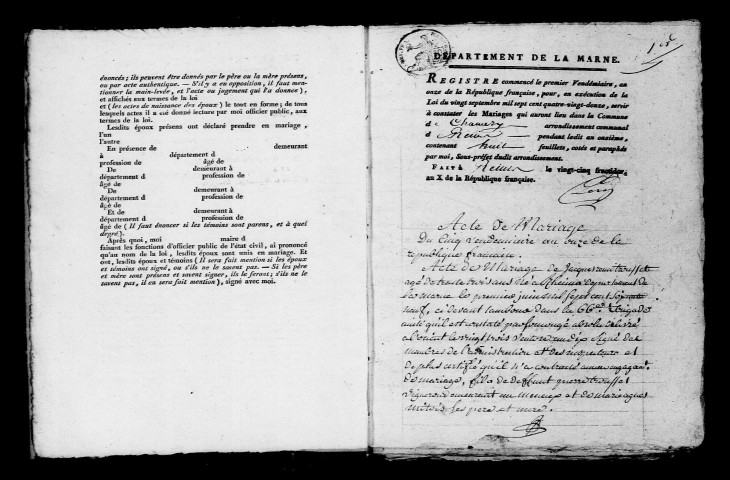 énoncés; ils peuvent être donnés par le père ou la mère présens,
ou par acte authentique. — S'il y a eu opposition, il faut men-
tionner la main-levée, et l'acte ou jugement qui l'a donnée),
et affichés aux termes de la loi
et (les actes de naissance des époux) le tout en forme; de tous
lesquels actes il a été donné lecture par moi officier public, aux
termes de la loi.
Lesdits époux présens ont déclaré prendre en mariage,
l'un
l'autre
En présence de demeurant
à département d
profession de âgé de
De demeurant à
département d profession de
âgé de
De demeurant à
département d profession de
âgé de
Et de demeurant à
département d profession de
âgé de (Il faut énoncer si les témoins sont parens, et à quel
degré).
Après quoi, moi maire d
faisant les fonctions d'officier public de l'état civil, ai prononcé
qu'au nom de la loi, lesdits époux sont unis en mariage. Et
ont, lesdits époux et témoins (Il sera fait mention si les époux
et témoins ont signé, ou s'ils ne savent pas. — Si les père
et mère sont présens et savent signer, ils le feront; s'ils ne le
savent pas, il en sera fait mention), signé avec moi.
1er
DÉPARTEMENT DE LA MARNE.
REGISTRE commencé le premier Vendémiaire, an
onze de la République française, pour, en exécution de la
Loi du vingt septembre mil sept cent quatre-vingt-douze, servir
à constater les Mariages qui auront lieu dans la Commune
d arrondissement communal
d Reims pendant ledit an onzième,
contenant huit feuillets, cotés et paraphés
par moi, Sous-préfet dudit arrondissement.
FAIT à Reims le vingt-cinq fructidor,
an X de la République française.
Acte de Mariage
Du Cinq Vendemiaire an onze de la
republique francaise
Acte de Mariage de Jacques
agé de trente trois ans né a departement de
la marne le premier sept cent soixante
neuf, ci devant tambour dans la 66e Brigade
le vingt trois signé des
membres de l'administration et des
de plus certifié qu'il n'a contracté aucun engagement
de mariage, fils de deffunt pierre
vigneron demeurant au et de marie
ses pere et mere.